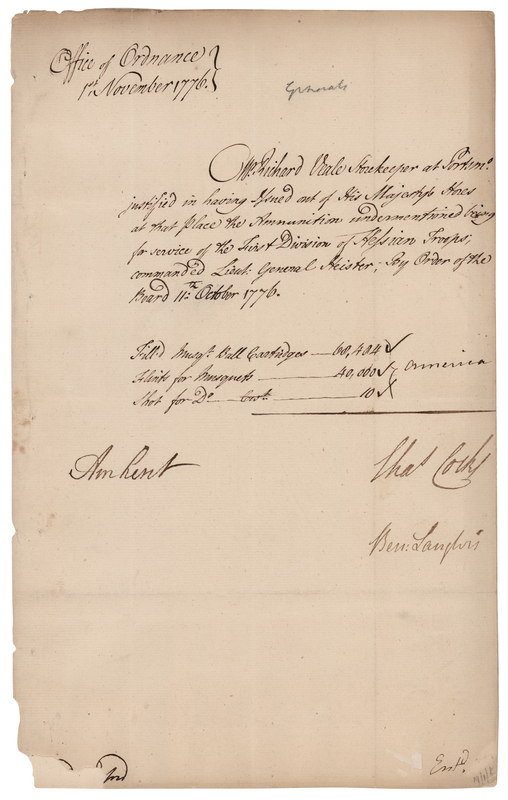 Office of Ordnance
1st November 1776.
Mr. Richard Veale Storekeeper at Portsmo.
justified in having Issued out of His Majestys Stores
at that Place the Ammunition undermentioned being
for service of the First Division of Hessian Troops,
commanded Lieut: General Heister, By Order of the
Board 11th October 1776.
Fill'd Musqt. Ball Cartridges — 60,404
Flints for Musquets — 40,000 America
Shot for Do. — Cwt. — 10
Amherst
Chas Cocks
Ben: Langlois
Entd.